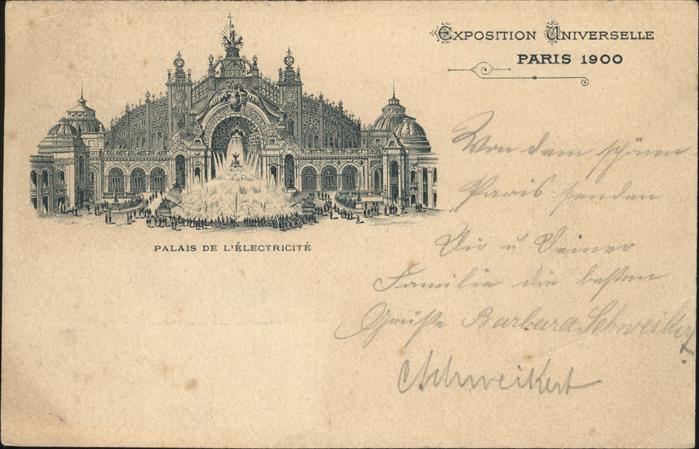 EXPOSITION UNIVERSELLE
PARIS 1900
PALAIS DE L'ÉLECTRICITÉ
Von dem schönen
Paris senden
Dir u Deiner
Familie die besten
Grüße Barbara Schweikert
Schweikert